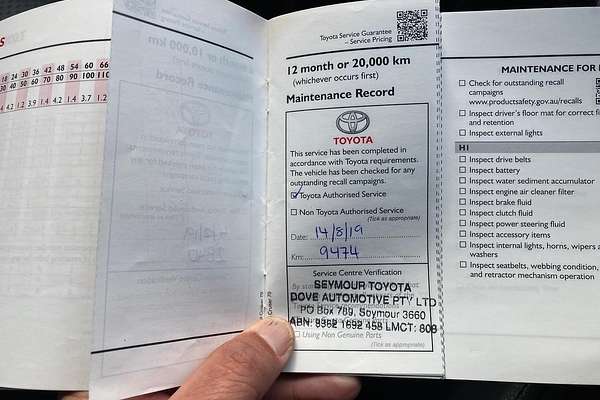 18 24 30 36 42 48 54 60 66
30 40 50 60 70 80 90 100 110
4.2 1.2 3.9 1.4 4.2 1.4 3.7 1.2
Toyota Service Guarantee
– Service Pricing
12 month or 20,000 km
(whichever occurs first)
Maintenance Record
TOYOTA
This service has been completed in
accordance with Toyota requirements.
The vehicle has been checked for any
outstanding recall campaigns.
Toyota Authorised Service
Non Toyota Authorised Service
(Tick as appropriate)
Date: 14/8/19
Km: 9474
Service Centre Verification
SEYMOUR TOYOTA
DOVE AUTOMOTIVE PTY LTD
PO Box 789, Seymour 3660
ABN: 8362 1692 458 LMCT: 808
Using Non Genuine Parts
(Tick as appropriate)
MAINTENANCE FOR
Check for outstanding recall
campaigns
www.productsafety.gov.au/recalls
Inspect driver's floor mat for correct
and retention
Inspect external lights
HI
Inspect drive belts
Inspect battery
Inspect water sediment accumulator
Inspect engine air cleaner filter
Inspect brake fluid
Inspect clutch fluid
Inspect power steering fluid
Inspect accessory items
Inspect internal lights, horns, wipers
washers
Inspect seatbelts, webbing condition,
and retractor mechanism operation